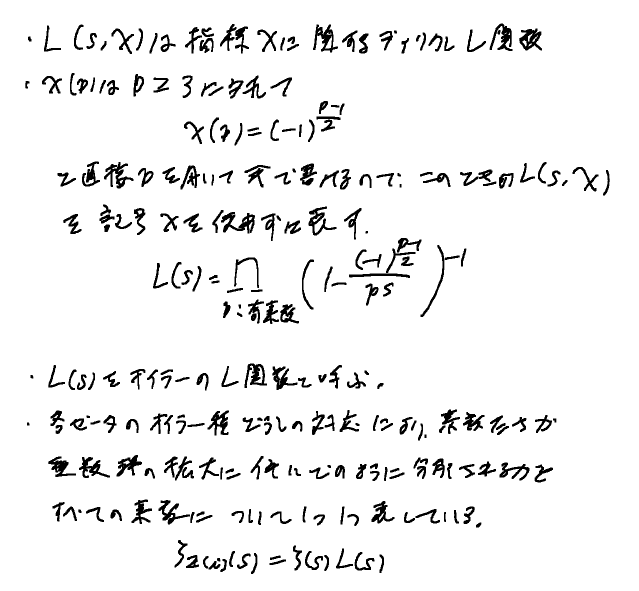 ・L(s,χ)は指標χに関するディリクレL関数
・χ(p)はp≧3に対して
χ(p)=(-1)^{\frac{p-1}{2}}
と直接pを用いて式で書けるので、このときのL(s,χ)
を記号χを使わずに表す.
L(s)=∏_{p:奇素数}(1-\frac{(-1)^{\frac{p-1}{2}}}{p^s})^{-1}
・L(s)をオイラーのL関数と呼ぶ.
・各ゼータのオイラー積どうしの対応により、素数たちが
整数環の拡大に伴いどのように分解されるかを
すべての素数について1つ1つ表している.
ζ_{Z(i)}(s)=ζ(s)L(s)